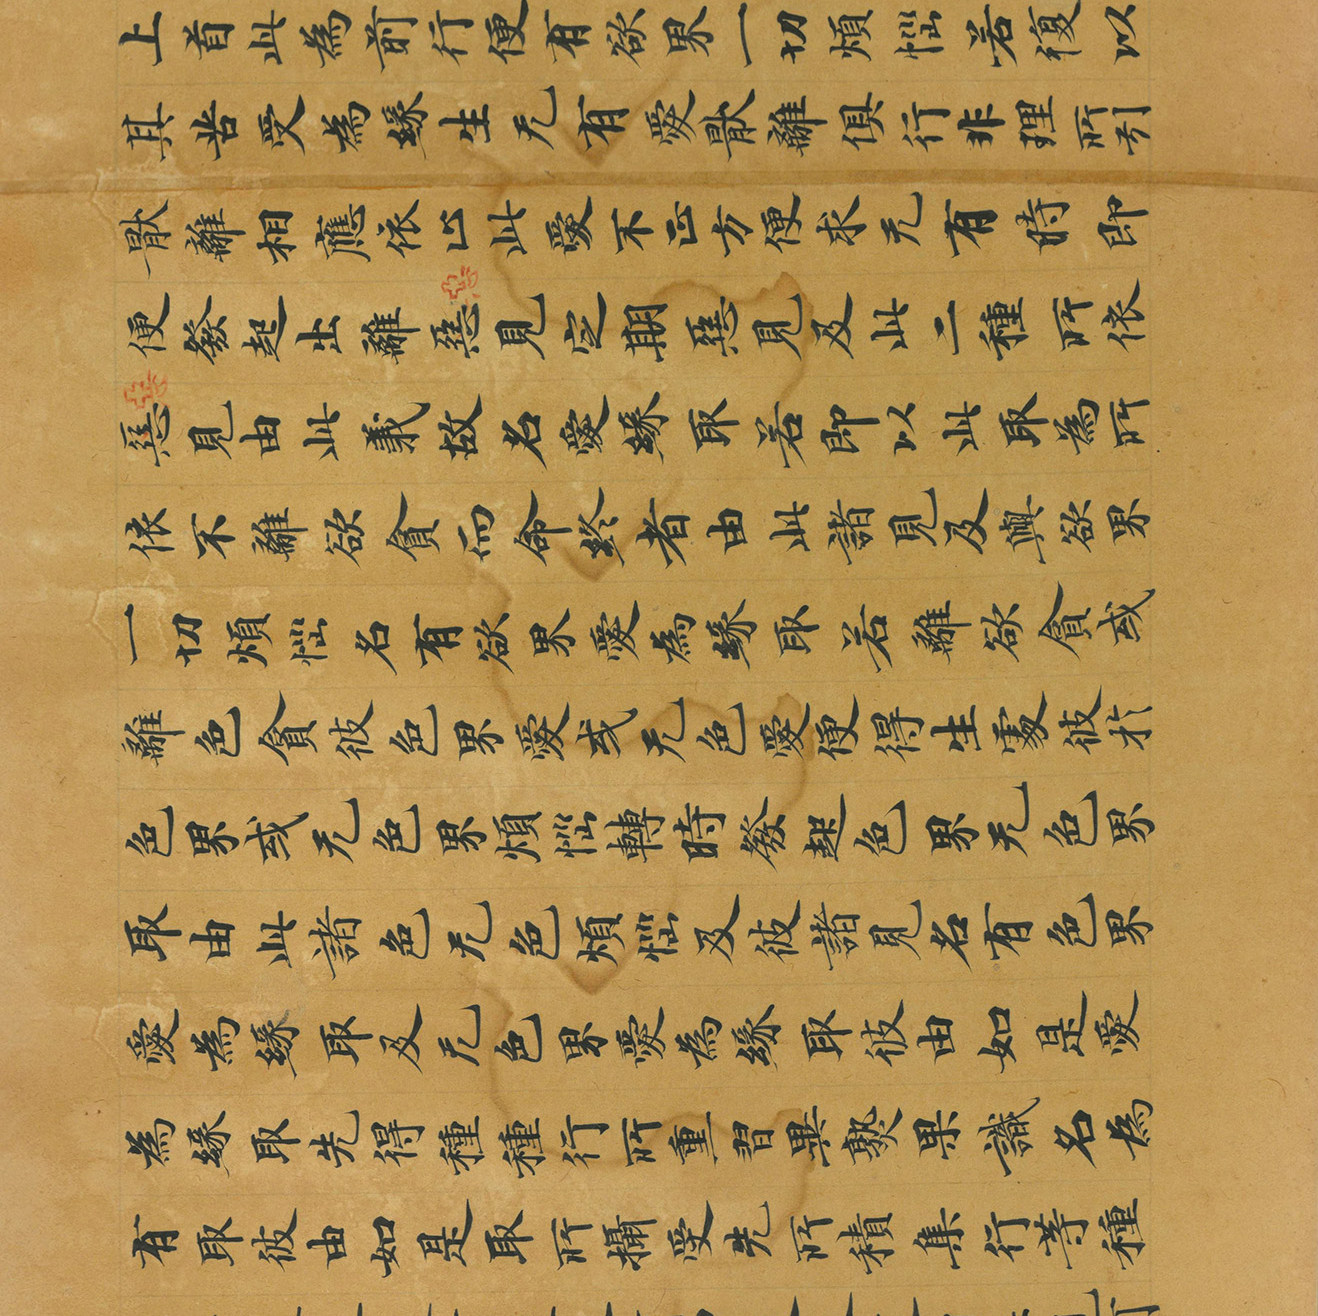 上首此為前行便有欲界一切煩惱若復以
其苦受為緣生无有愛猒離俱行非理所引
猒離相應依止此愛不正方便求无有時即
便發起出離惡見定期惡見及此二種所依
惡見由此義故名愛緣取若即以此取為所
依不離欲貪而命終者由此諸見及與欲界
一切煩惱名有欲界愛為緣取若離欲貪或
離色貪彼色界愛或无色愛便得生處彼於
色界或无色界煩惱轉時發起色界无色界
取由此諸色无色煩惱及彼諸見名有色界
愛為緣取及无色界愛為緣取彼由如是愛
為緣取先得種種行所重習異熟果識名為
有取彼由如是取所攝受先所積集行等種